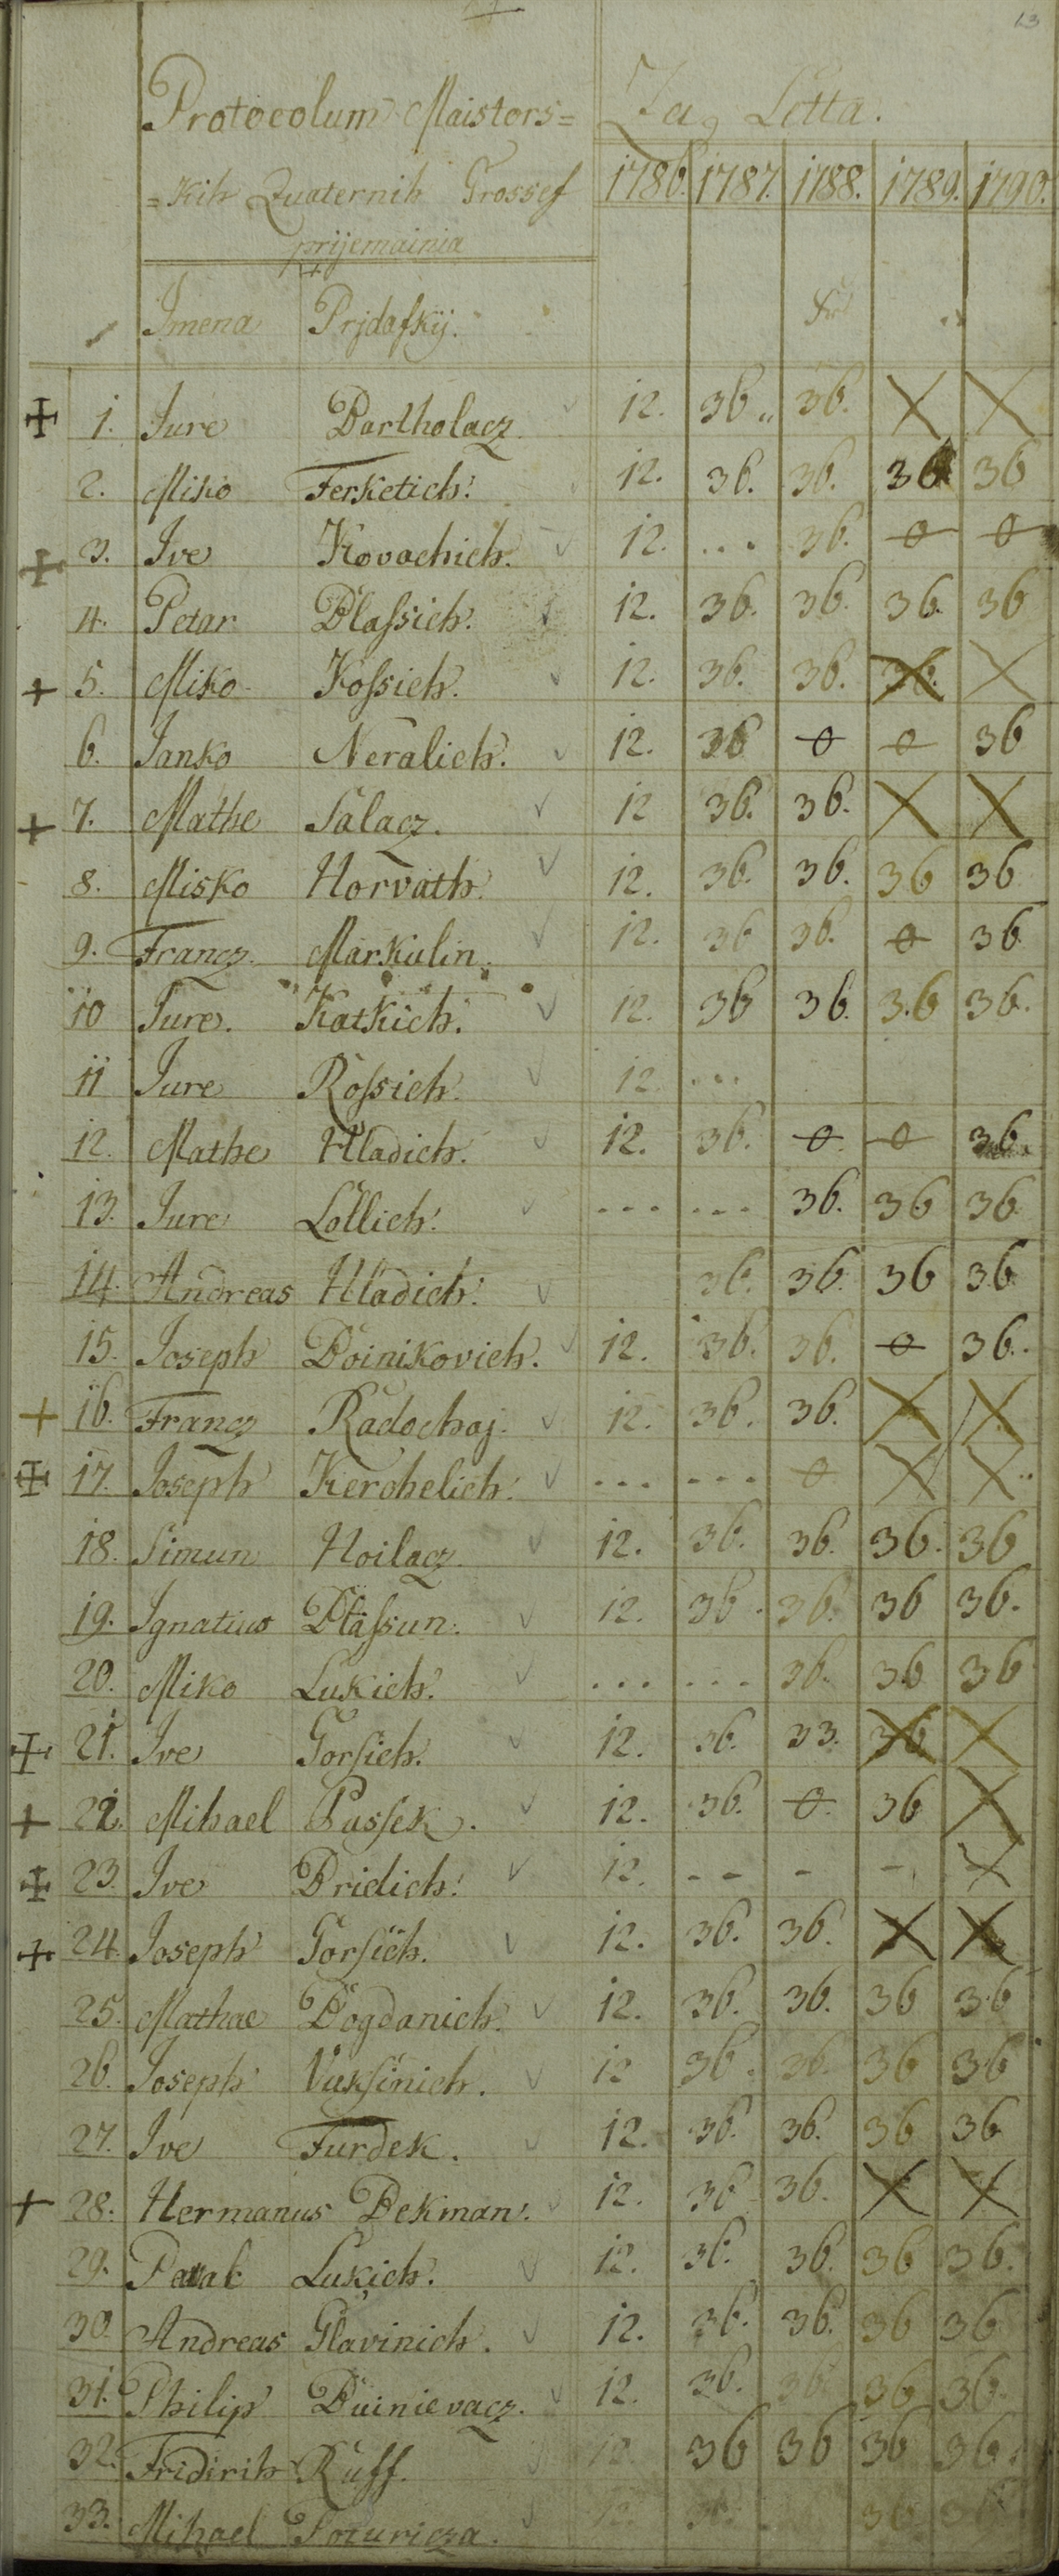 13
Protocolum Maistors=
Za Letta.
=kih Quaternih Grossef
1786. 1787. 1788. 1789. 1790.
prijemainia
Imena Prjdafkÿ.
1. Jure Bartholacz 12. 36.. 36. X X
2. Miko Ferketich. 12. 36. 36. 36 36
3. Ive Kovachich. 12. ... 36. 0 0
4. Petar Blassich. 12. 36. 36. 36. 36
5. Miko Kossich. 12. 36. 36. 36. X
6. Janko Neralich. 12. 36 0 0 36
7. Mathe Salacz. 12 36. 36. X X
8. Misko Horvath. 12. 36. 36. 36 36
9. Francz. Markulin. 12. 36 36. 0 36
10 Jure. Katkich. 12. 36 36. 36 36.
11 Jure Rossich. 12. ...
12. Mathe Hladich. 12. 36. 0. 0 36
13. Jure Lollich. ... ... 36. 36 36
14. Andreas Hladich. 36. 36. 36 36
15. Joseph Boinikovich. 12. 36. 36. 0 36.
16. Francz Radochaj. 12. 36. 36. X X
17. Joseph Kerchelich. ... ... 0 X X
18. Simun Hoilacz. 12. 36. 36. 36. 36
19. Ignatius Blassun. 12. 36. 36. 36 36.
20. Miko Lukich. ... ... 36. 36 36
21. Ive Gorsich. 12. 36. 33. 36 X
22. Mihael Pussek. 12. 36. 0. 36 X
23. Ive Bridich. 12. -- - - X
24. Joseph Gorsich. 12. 36. 36. X X
25. Mathae Bogdanich. 12. 36. 36. 36 36
26. Joseph Vuksinich. 12 36. 36. 36 36
27. Ive Furdek. 12. 36. 36. 36 36
28. Hermanus Bekman. 12. 36 36. X X
29. Paval Lukich. 12. 36. 36. 36 36.
30. Andreas Glavinich. 12. 36. 36. 36 36
31. Philip Buinievacz. 12. 36. 36 36 36.
32. Fridirih Ruff. 12. 36 36 36 36.
33. Mihael Poturicza. 12. 36. 36 36